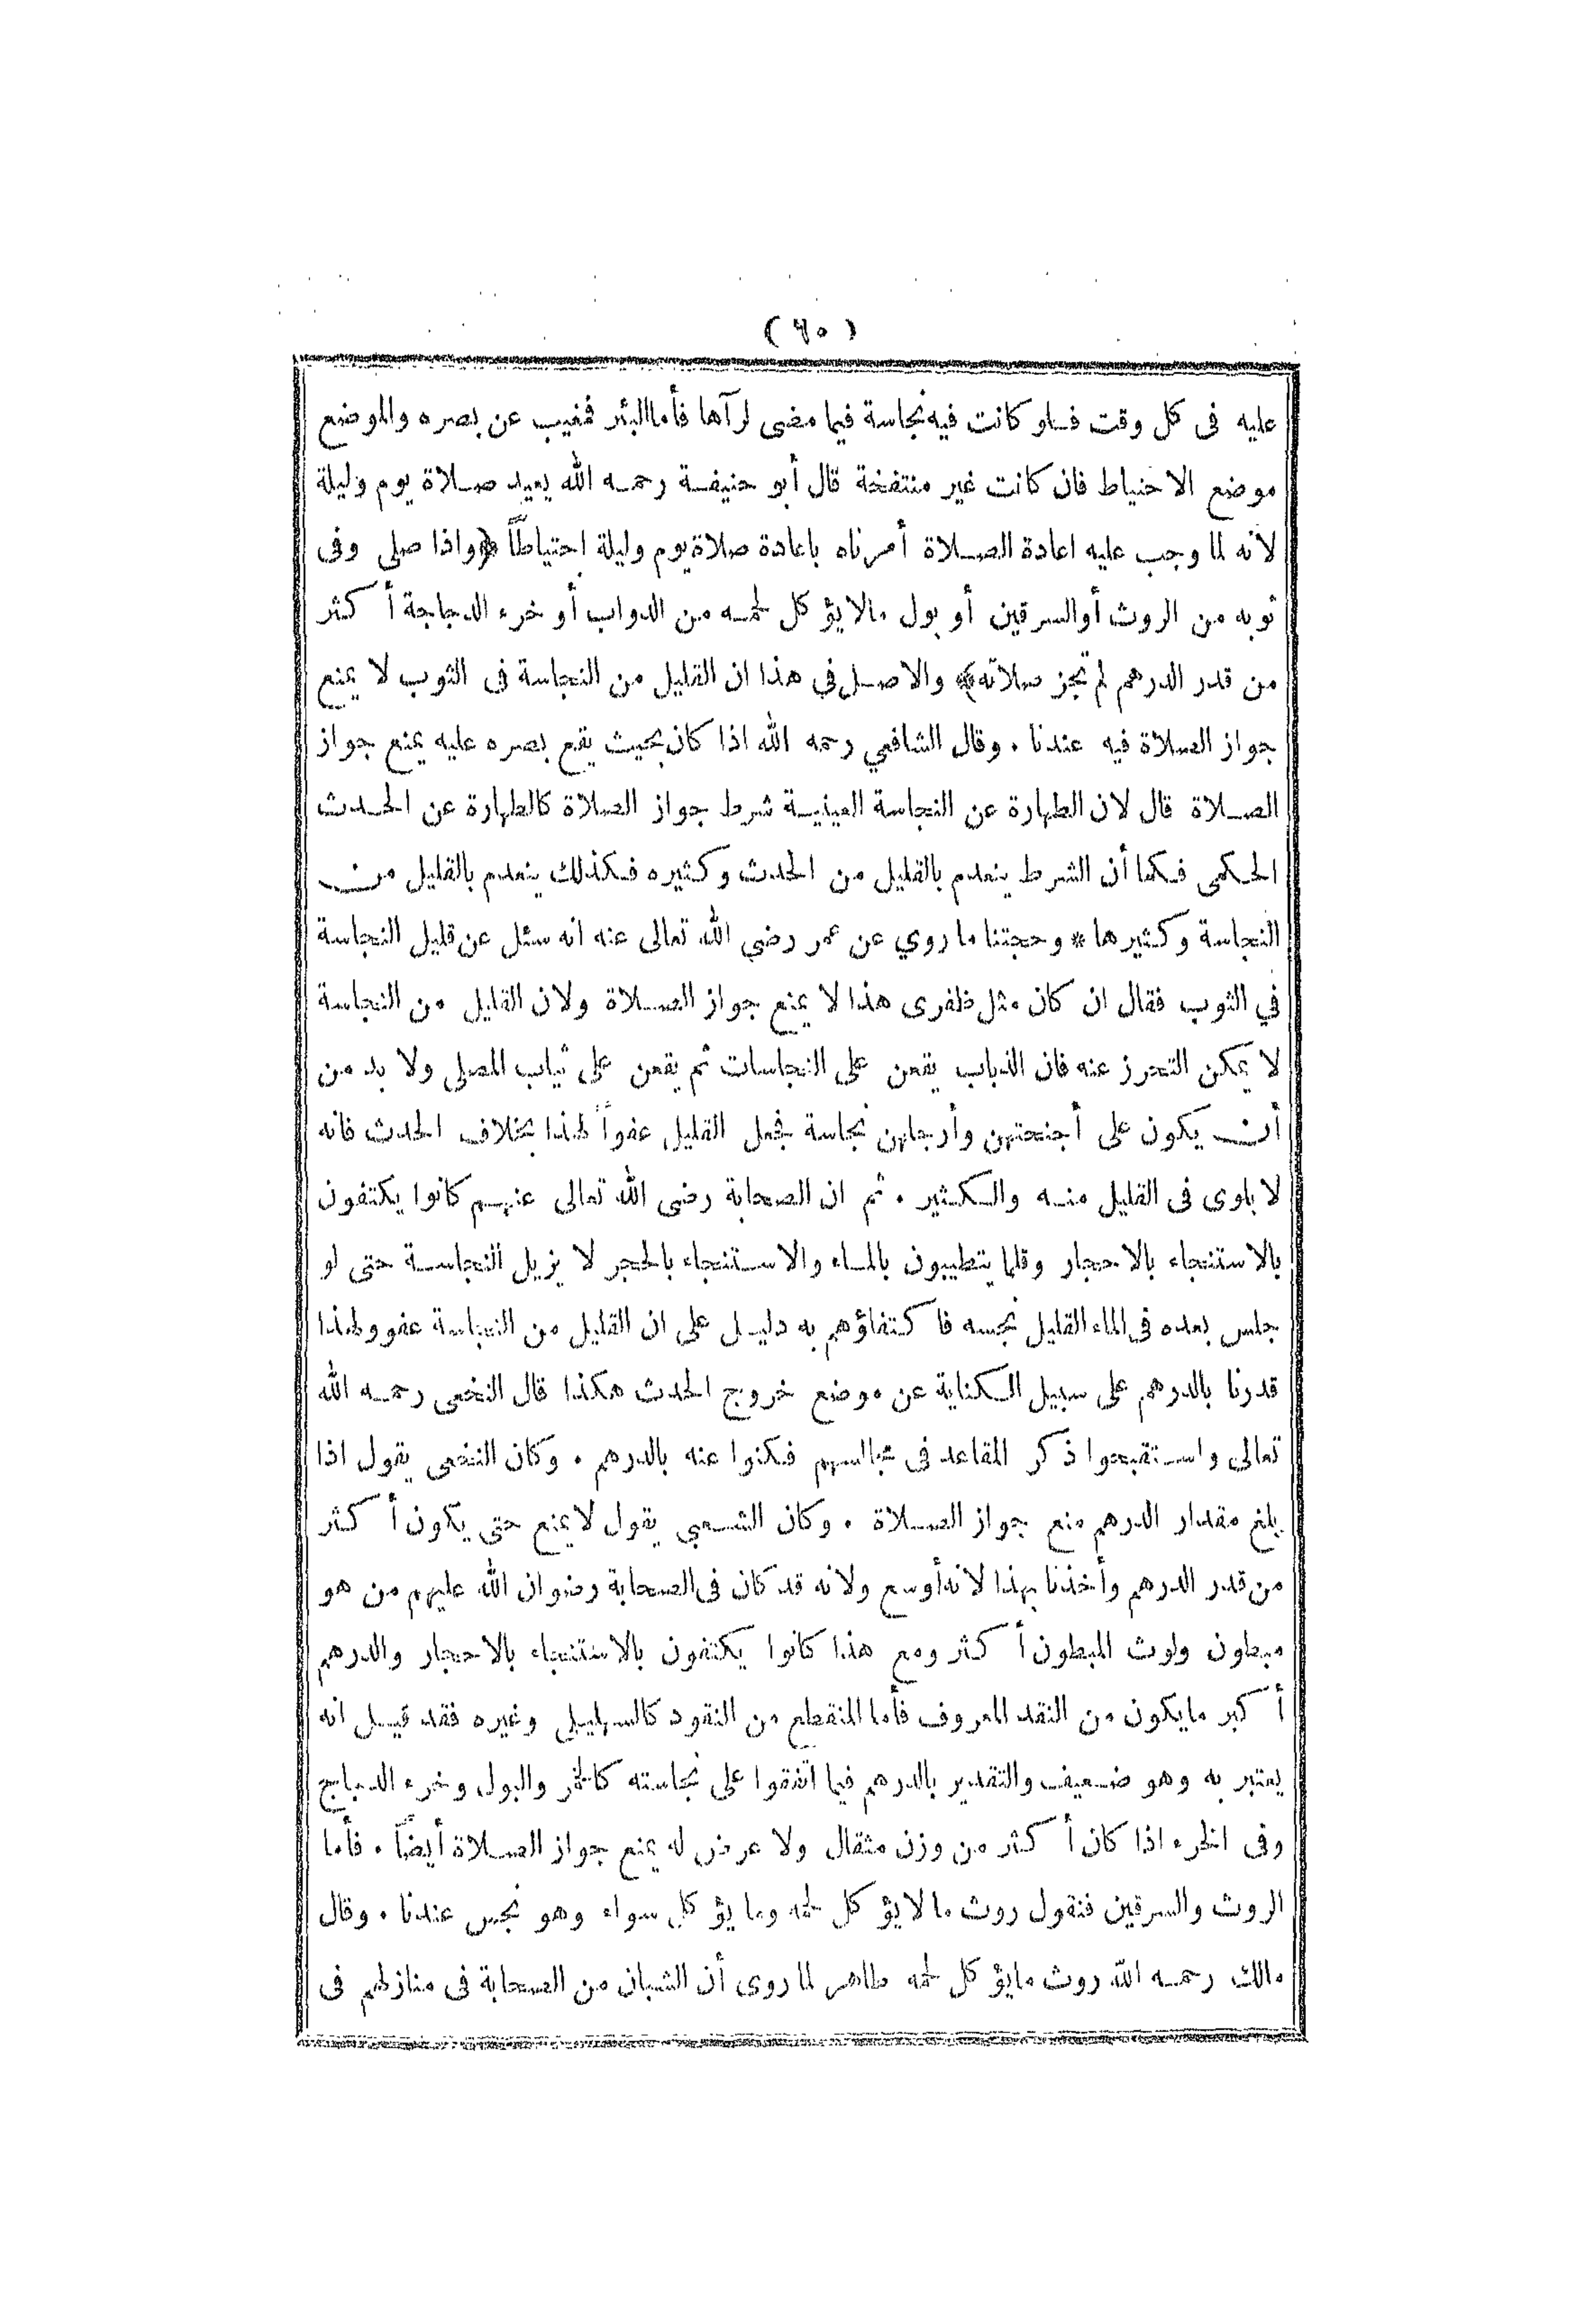 (٦٠)
عليه فى كل وقت فلو كانت فيه نجاسة فيما مضى لرآها فأما البئر فمغيب عن بصره والموضع
موضع الاحتياط فان كانت غير منتفخة قال أبو حنيفة رحمه الله يعيد صلاة يوم وليلة
لأنه لما وجب عليه اعادة الصلاة أمرناه باعادة صلاة يوم وليلة احتياطاً ﴿واذا صلى وفى
ثوبه من الروث أو السرقين أو بول مالا يؤكل لحمه من الدواب أو خرء الدجاجة أكثر
من قدر الدرهم لم تجز صلاته﴾ والاصل في هذا ان القليل من النجاسة فى الثوب لا يمنع
جواز الصلاة فيه عندنا . وقال الشافعي رحمه الله اذا كان بحيث يقع بصره عليه يمنع جواز
الصلاة قال لان الطهارة عن النجاسة العينية شرط جواز الصلاة كالطهارة عن الحدث
الحكمى فكما أن الشرط ينعدم بالقليل من الحدث وكثيره فكذلك ينعدم بالقليل من
النجاسة وكثيرها * وحجتنا ما روي عن عمر رضي الله تعالى عنه انه سئل عن قليل النجاسة
في الثوب فقال ان كان مثل ظفرى هذا لا يمنع جواز الصلاة ولان القليل من النجاسة
لا يمكن التحرز عنه فان الذباب يقعن على النجاسات ثم يقعن على ثياب المصلى ولا بد من
أن يكون على أجنحتهن وأرجلهن نجاسة فجعل القليل عفواً لهذا بخلاف الحدث فانه
لا بلوى فى القليل منه والكثير . ثم ان الصحابة رضى الله تعالى عنهم كانوا يكتفون
بالاستنجاء بالاحجار وقلما يتطيبون بالماء والاستنجاء بالحجر لا يزيل النجاسة حتى لو
جلس بعده فى الماء القليل نجسه فاكتفاؤهم به دليل على ان القليل من النجاسة عفو ولهذا
قدرنا بالدرهم على سبيل الكناية عن موضع خروج الحدث هكذا قال النخعى رحمه الله
تعالى واستقبحوا ذكر المقاعد فى مجالسهم فكنوا عنه بالدرهم . وكان النخعى يقول اذا
بلغ مقدار الدرهم منع جواز الصلاة . وكان الشعبي يقول لا يمنع حتى يكون أكثر
من قدر الدرهم وأخذنا بهذا لانه أوسع ولانه قد كان فى الصحابة رضوان الله عليهم من هو
مبطون ولوث المبطون أكثر ومع هذا كانوا يكتفون بالاستنجاء بالاحجار والدرهم
أكبر مايكون من النقد المعروف فأما المنقطع من النقود كالسهيلى وغيره فقد قيل انه
يعتبر به وهو ضعيف والتقدير بالدرهم فيما اتفقوا على نجاسته كالخمر والبول وخرء الدجاج
وفى الخرء اذا كان أكثر من وزن مثقال ولا عرض له يمنع جواز الصلاة أيضاً . فأما
الروث والسرقين فنقول روث مالا يؤكل لحمه وما يؤكل سواء وهو نجس عندنا . وقال
مالك رحمه الله روث مايؤكل لحمه طاهر لما روى أن الشبان من الصحابة فى منازلهم فى